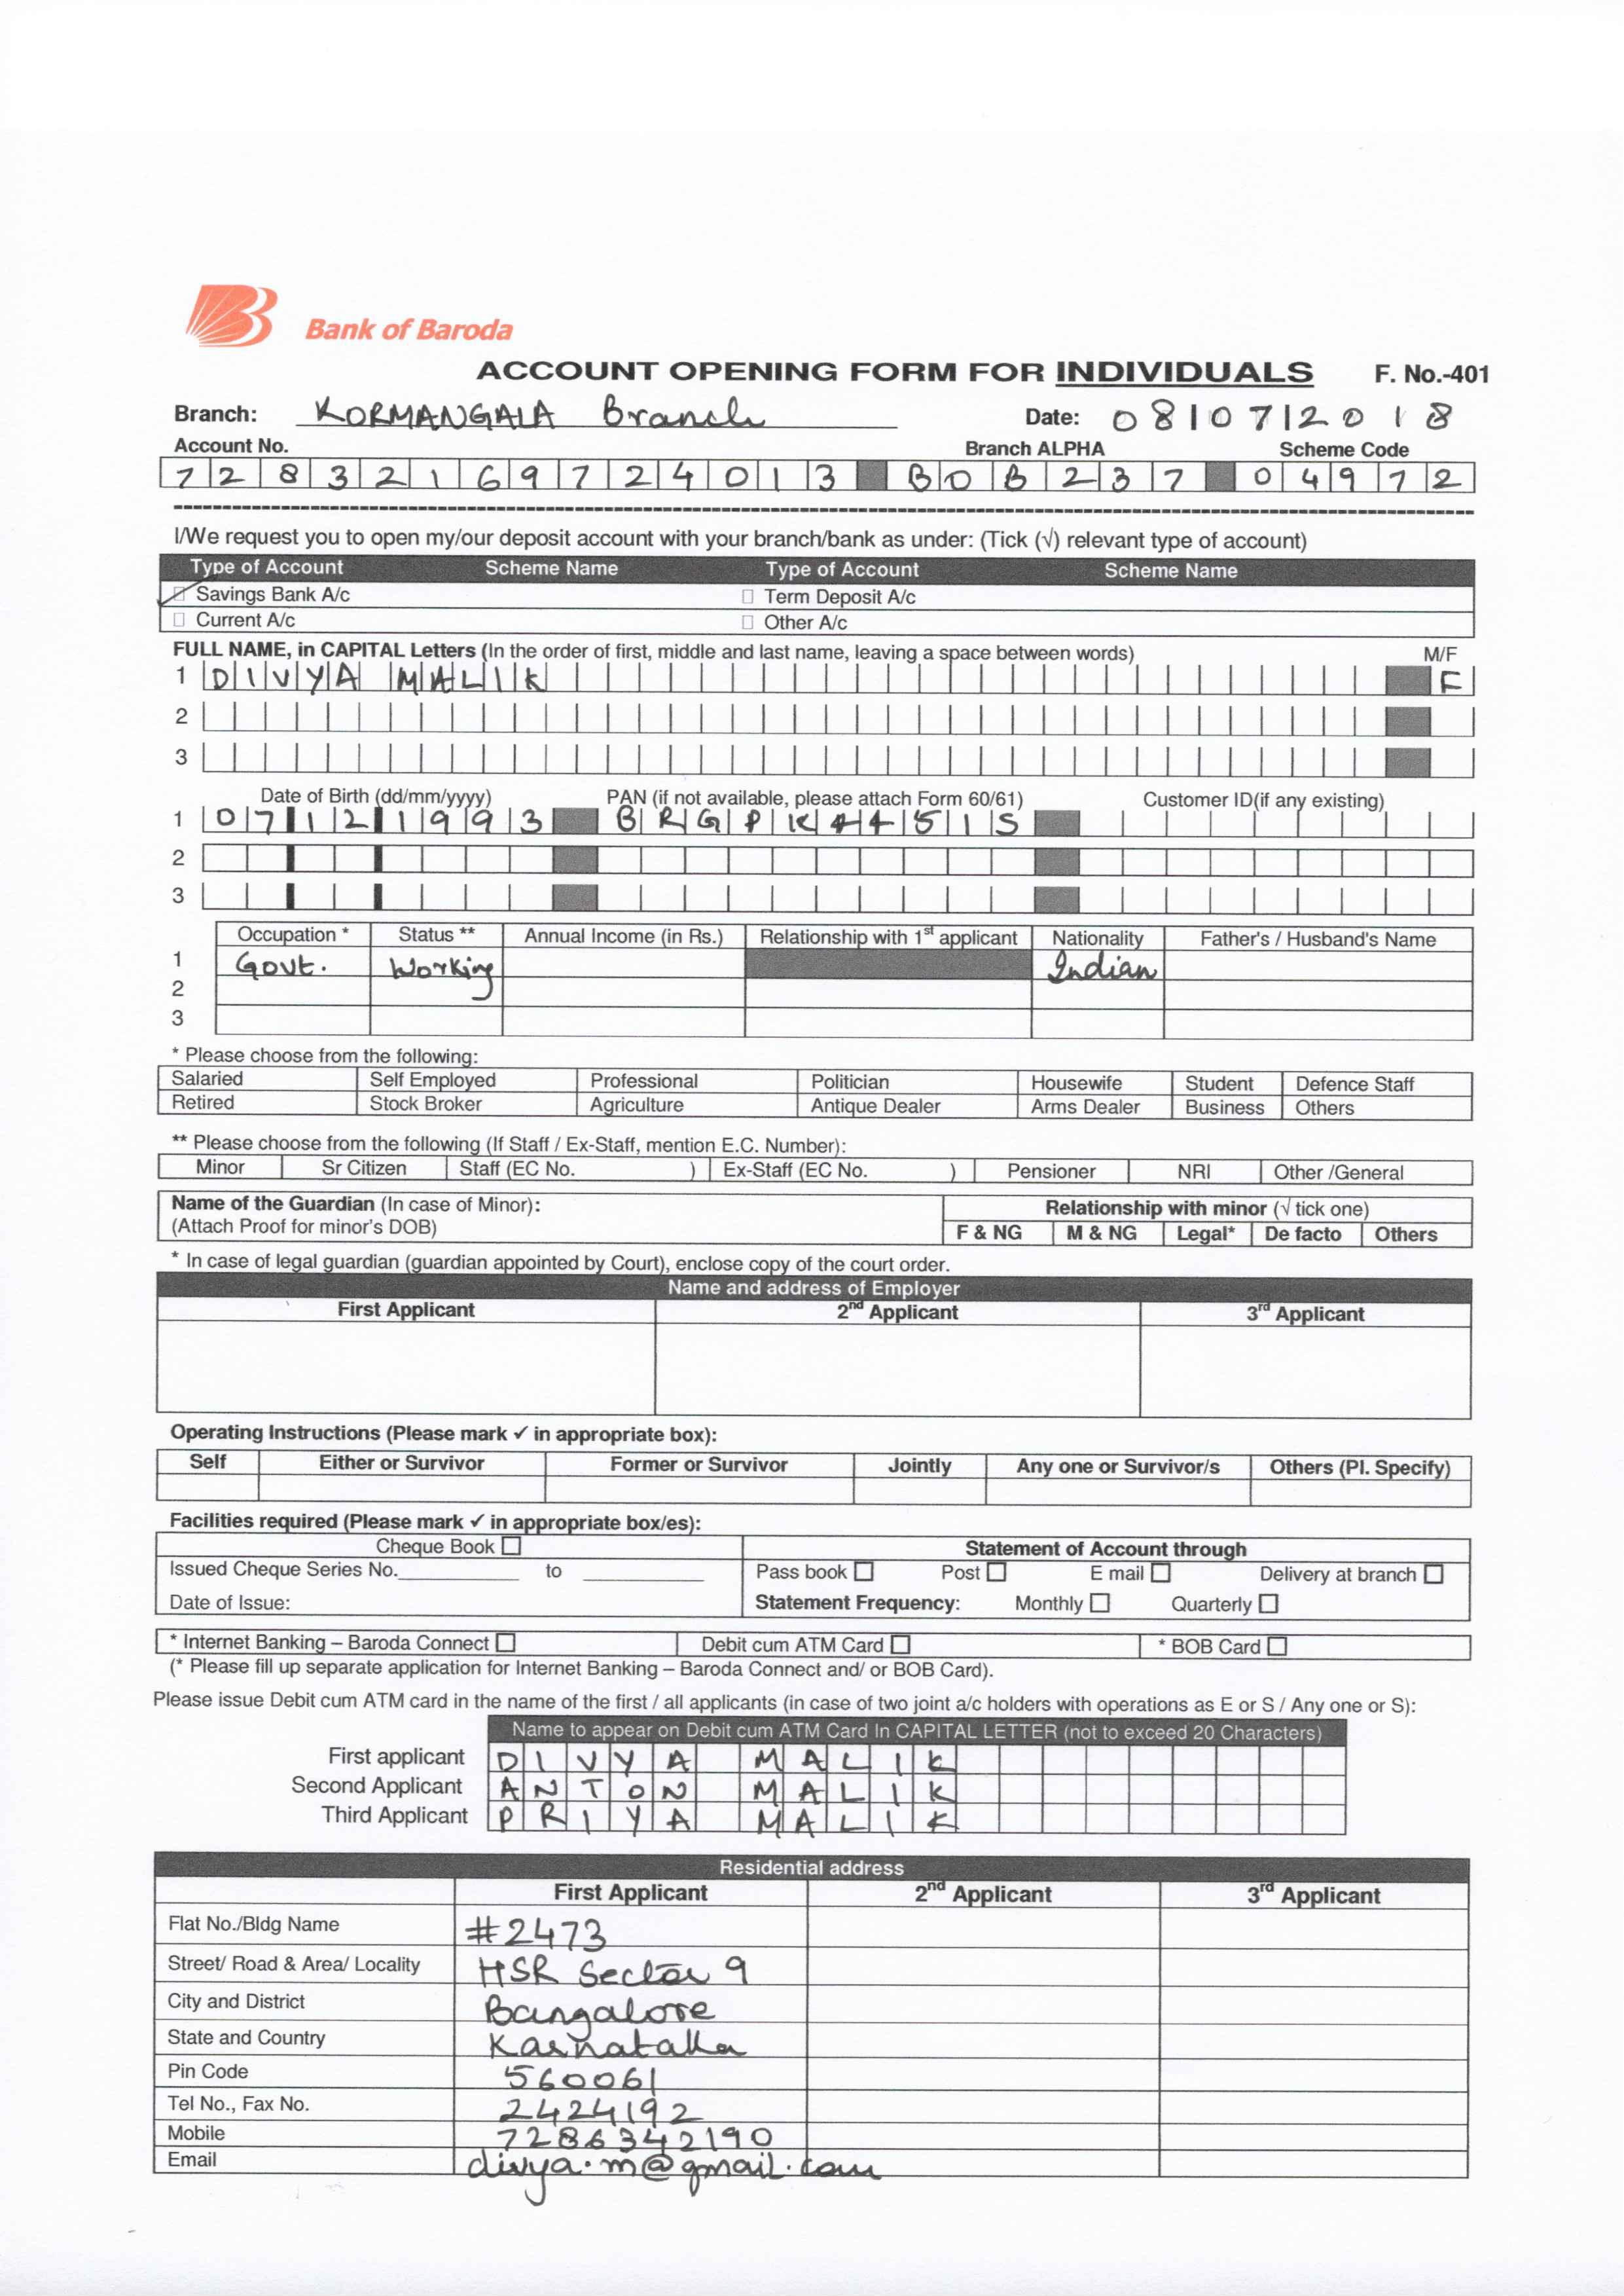 Bank of Baroda
ACCOUNT OPENING FORM FOR INDIVIDUALS F. No.-401
Branch: KORMANGALA Branch Date: 08/07/2018
Account No. Branch ALPHA Scheme Code
72832169724013 BOB237 04972
I/We request you to open my/our deposit account with your branch/bank as under: (Tick (√) relevant type of account)
Type of Account Scheme Name Type of Account Scheme Name
Savings Bank A/c Term Deposit A/c
Current A/c Other A/c
FULL NAME, in CAPITAL Letters (In the order of first, middle and last name, leaving a space between words) M/F
1 DIVYA MALIK F
2
3
Date of Birth (dd/mm/yyyy) PAN (if not available, please attach Form 60/61) Customer ID(if any existing)
1 07121993 BRGPK4451S
2
3
Occupation * Status ** Annual Income (in Rs.) Relationship with 1st applicant Nationality Father's / Husband's Name
1 Govt. Working Indian
2
3
* Please choose from the following:
Salaried Self Employed Professional Politician Housewife Student Defence Staff
Retired Stock Broker Agriculture Antique Dealer Arms Dealer Business Others
** Please choose from the following (If Staff / Ex-Staff, mention E.C. Number):
Minor Sr Citizen Staff (EC No. ) Ex-Staff (EC No. ) Pensioner NRI Other /General
Name of the Guardian (In case of Minor): Relationship with minor (√ tick one)
(Attach Proof for minor's DOB) F & NG M & NG Legal* De facto Others
* In case of legal guardian (guardian appointed by Court), enclose copy of the court order.
Name and address of Employer
First Applicant 2nd Applicant 3rd Applicant
Operating Instructions (Please mark ✓ in appropriate box):
Self Either or Survivor Former or Survivor Jointly Any one or Survivor/s Others (Pl. Specify)
Facilities required (Please mark ✓ in appropriate box/es):
Cheque Book Statement of Account through
Issued Cheque Series No. to Pass book Post E mail Delivery at branch
Date of Issue: Statement Frequency: Monthly Quarterly
* Internet Banking – Baroda Connect Debit cum ATM Card * BOB Card
(* Please fill up separate application for Internet Banking – Baroda Connect and/ or BOB Card).
Please issue Debit cum ATM card in the name of the first / all applicants (in case of two joint a/c holders with operations as E or S / Any one or S):
Name to appear on Debit cum ATM Card In CAPITAL LETTER (not to exceed 20 Characters)
First applicant DIVYA MALIK
Second Applicant ANTON MALIK
Third Applicant PRIYA MALIK
Residential address
First Applicant 2nd Applicant 3rd Applicant
Flat No./Bldg Name #2473
Street/ Road & Area/ Locality HSR Sector 9
City and District Bangalore
State and Country Karnataka
Pin Code 560061
Tel No., Fax No. 2424192
Mobile 7286342190
Email divya.m@gmail.com